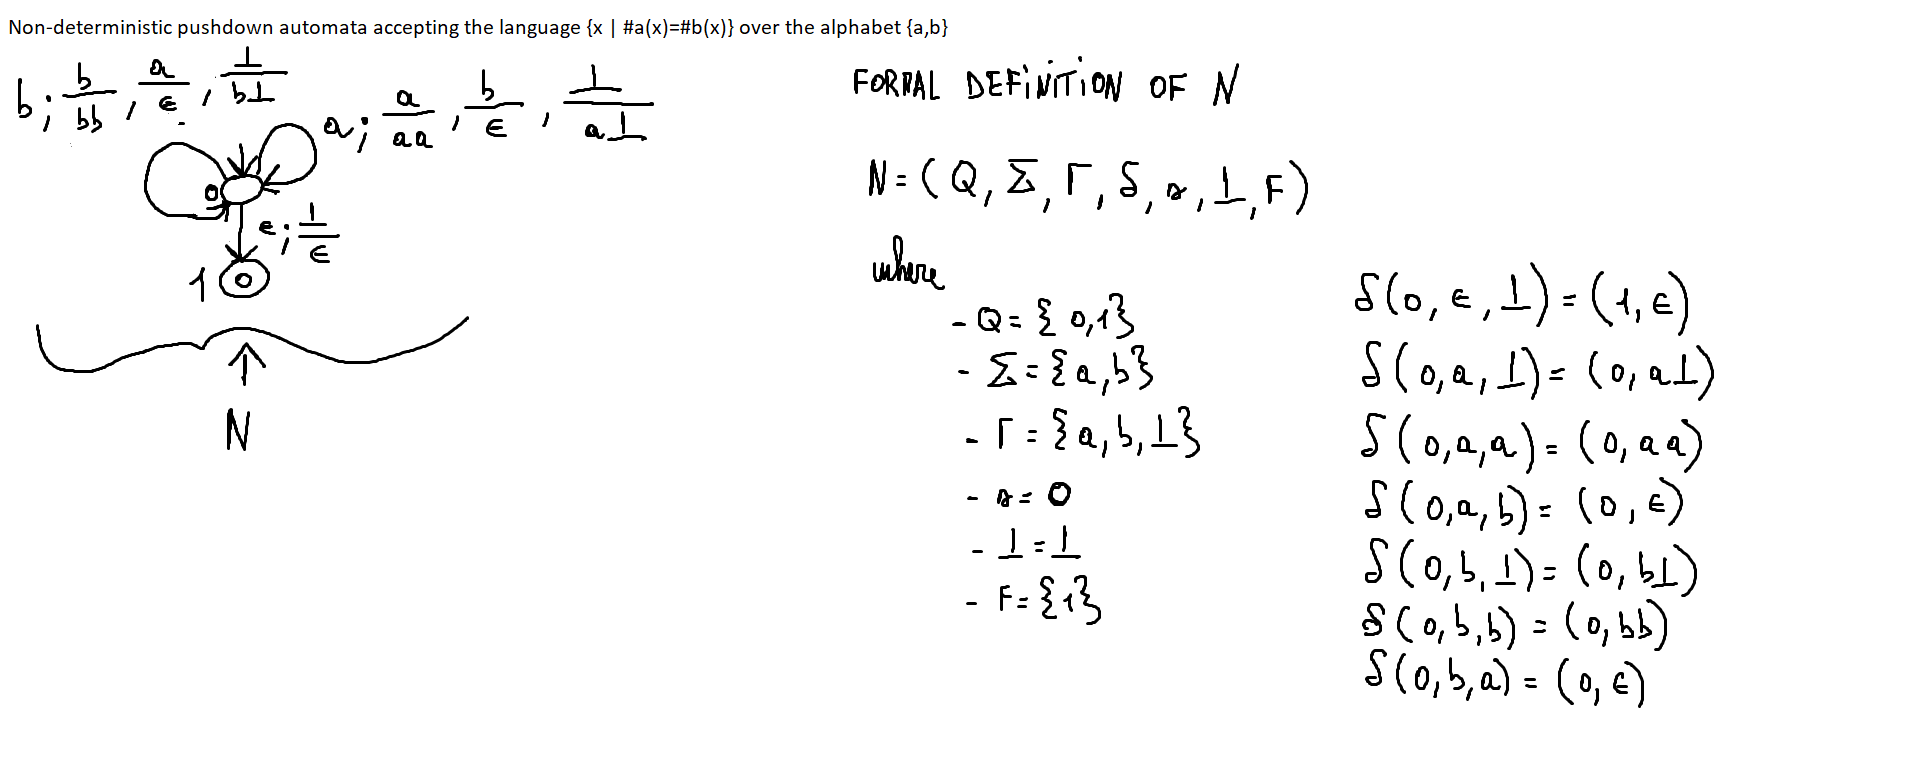 Non-deterministic pushdown automata accepting the language {x | #a(x)=#b(x)} over the alphabet {a,b}
b; b/bb, a/ϵ, ⊥/b⊥
a; a/aa, b/ϵ, ⊥/a⊥
0
ϵ; ⊥/ϵ
1
N
FORMAL DEFINITION OF N
N=(Q, Σ, Γ, δ, s, ⊥, F)
where
- Q= {0,1}
- Σ={a,b}
- Γ={a,b,⊥}
- s=0
- ⊥=⊥
- F={1}
δ(0,ϵ,⊥)=(1,ϵ)
δ(0,a,⊥)=(0,a⊥)
δ(0,a,a)=(0,aa)
δ(0,a,b)=(0,ϵ)
δ(0,b,⊥)=(0,b⊥)
δ(0,b,b)=(0,bb)
δ(0,b,a)=(0,ϵ)